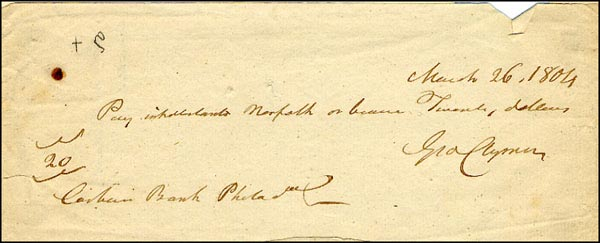 March 26, 1804
Pay Norfolk or bearer Twenty dollars
20
Geo Clymer
Cashier Bank Philada